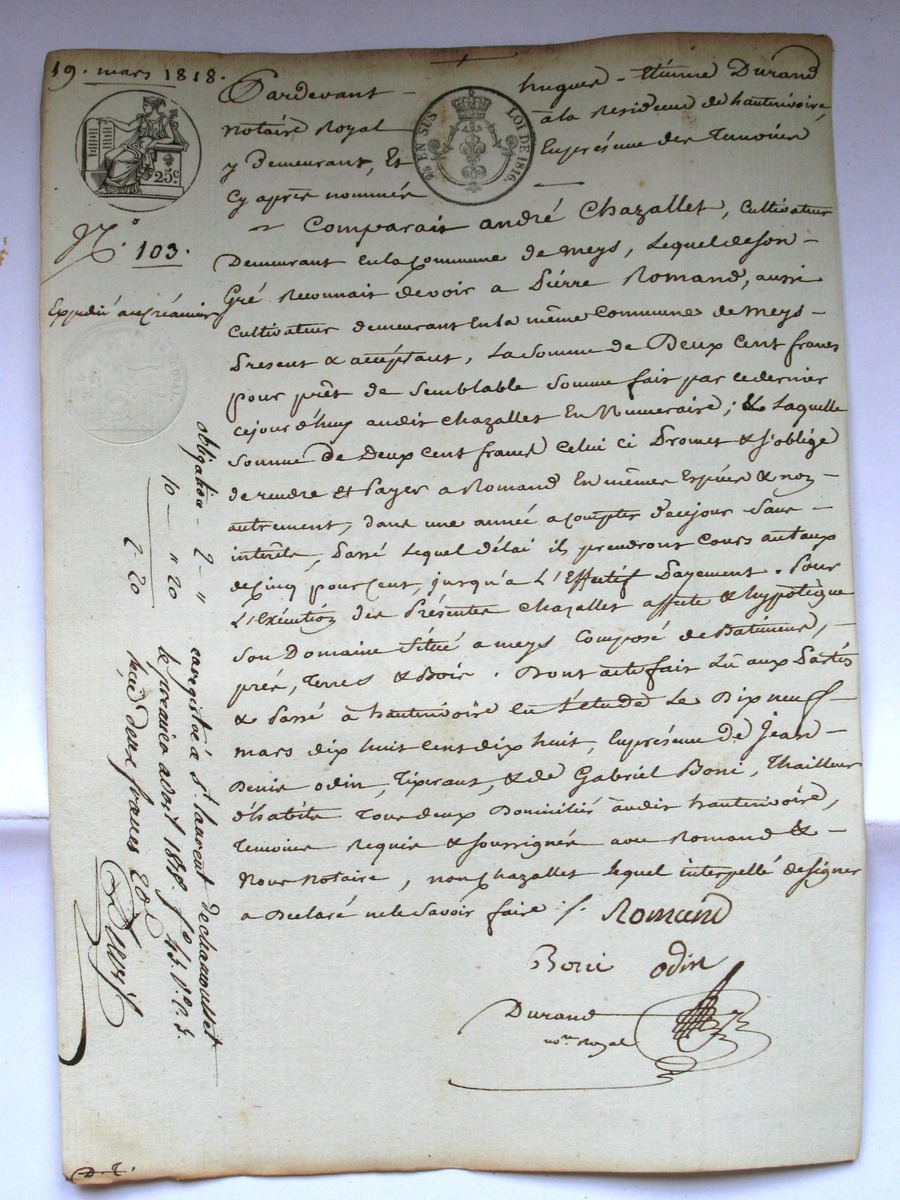 19. mars 1818.
25c
N.o 103.
Expédié au Créancier
Pardevant - hugues - Etienne Durand
en sus Loi de 1816.
notaire Royal à la Residence de hauterivoire,
y Demeurant, Et En présence des Temoins
Cy après nommés
Comparait andré Chazallet, Cultivateur
Demeurant En la Commune de meys, Lequel de son -
Gré Reconnait devoir a Pierre Romand, aussi
Cultivateur demeurant En la même Commune de Meys -
Present & acceptant, La Somme de Deux Cent francs
pour prêt de semblable Somme fait par ce dernier
cejourd'huy audit Chazallet En Numeraire; & Laquelle
Somme de Deux Cent francs Celui ci Promet & s'oblige
de rendre et Payer a Romand En mêmes Espèces & non
autrement, dans une année a Compter de ce jour Sans -
intérêts, Passé Lequel délai ils prendront Cours au taux
de Cinq pour Cent, jusqu'a L'Effectif Payement. Pour
L'Exécution des Présentes Chazallet affecte & hypotèque
Son Domaine Situé a meys Composé de Batimens, -
prés, Terres & Bois. Dont acte fait Lû aux Parties
& Passé à hauterivoire en L'étude Le Dix neuf -
mars dix huit Cent dix huit, En présence de Jean -
Denis odin, Tixerant, & de Gabriel Boni, Thailleur
d'habits Tous deux Domiciliés audit hauterivoire,
Temoins Requis & soussignés avec Romand & -
Nous Notaire, non Chazallet Lequel interpellé de signer
a Declaré ne le Savoir faire ./.
Romand
Boni odin
Durand
no.re Royal
obligation - 2 - "
10 - " 20
2 - 20
enregistré à St. laurent de chamousset
le premier avril 1818 fo 43 Vo C. 3.
reçu deux francs 20 c
D. T.